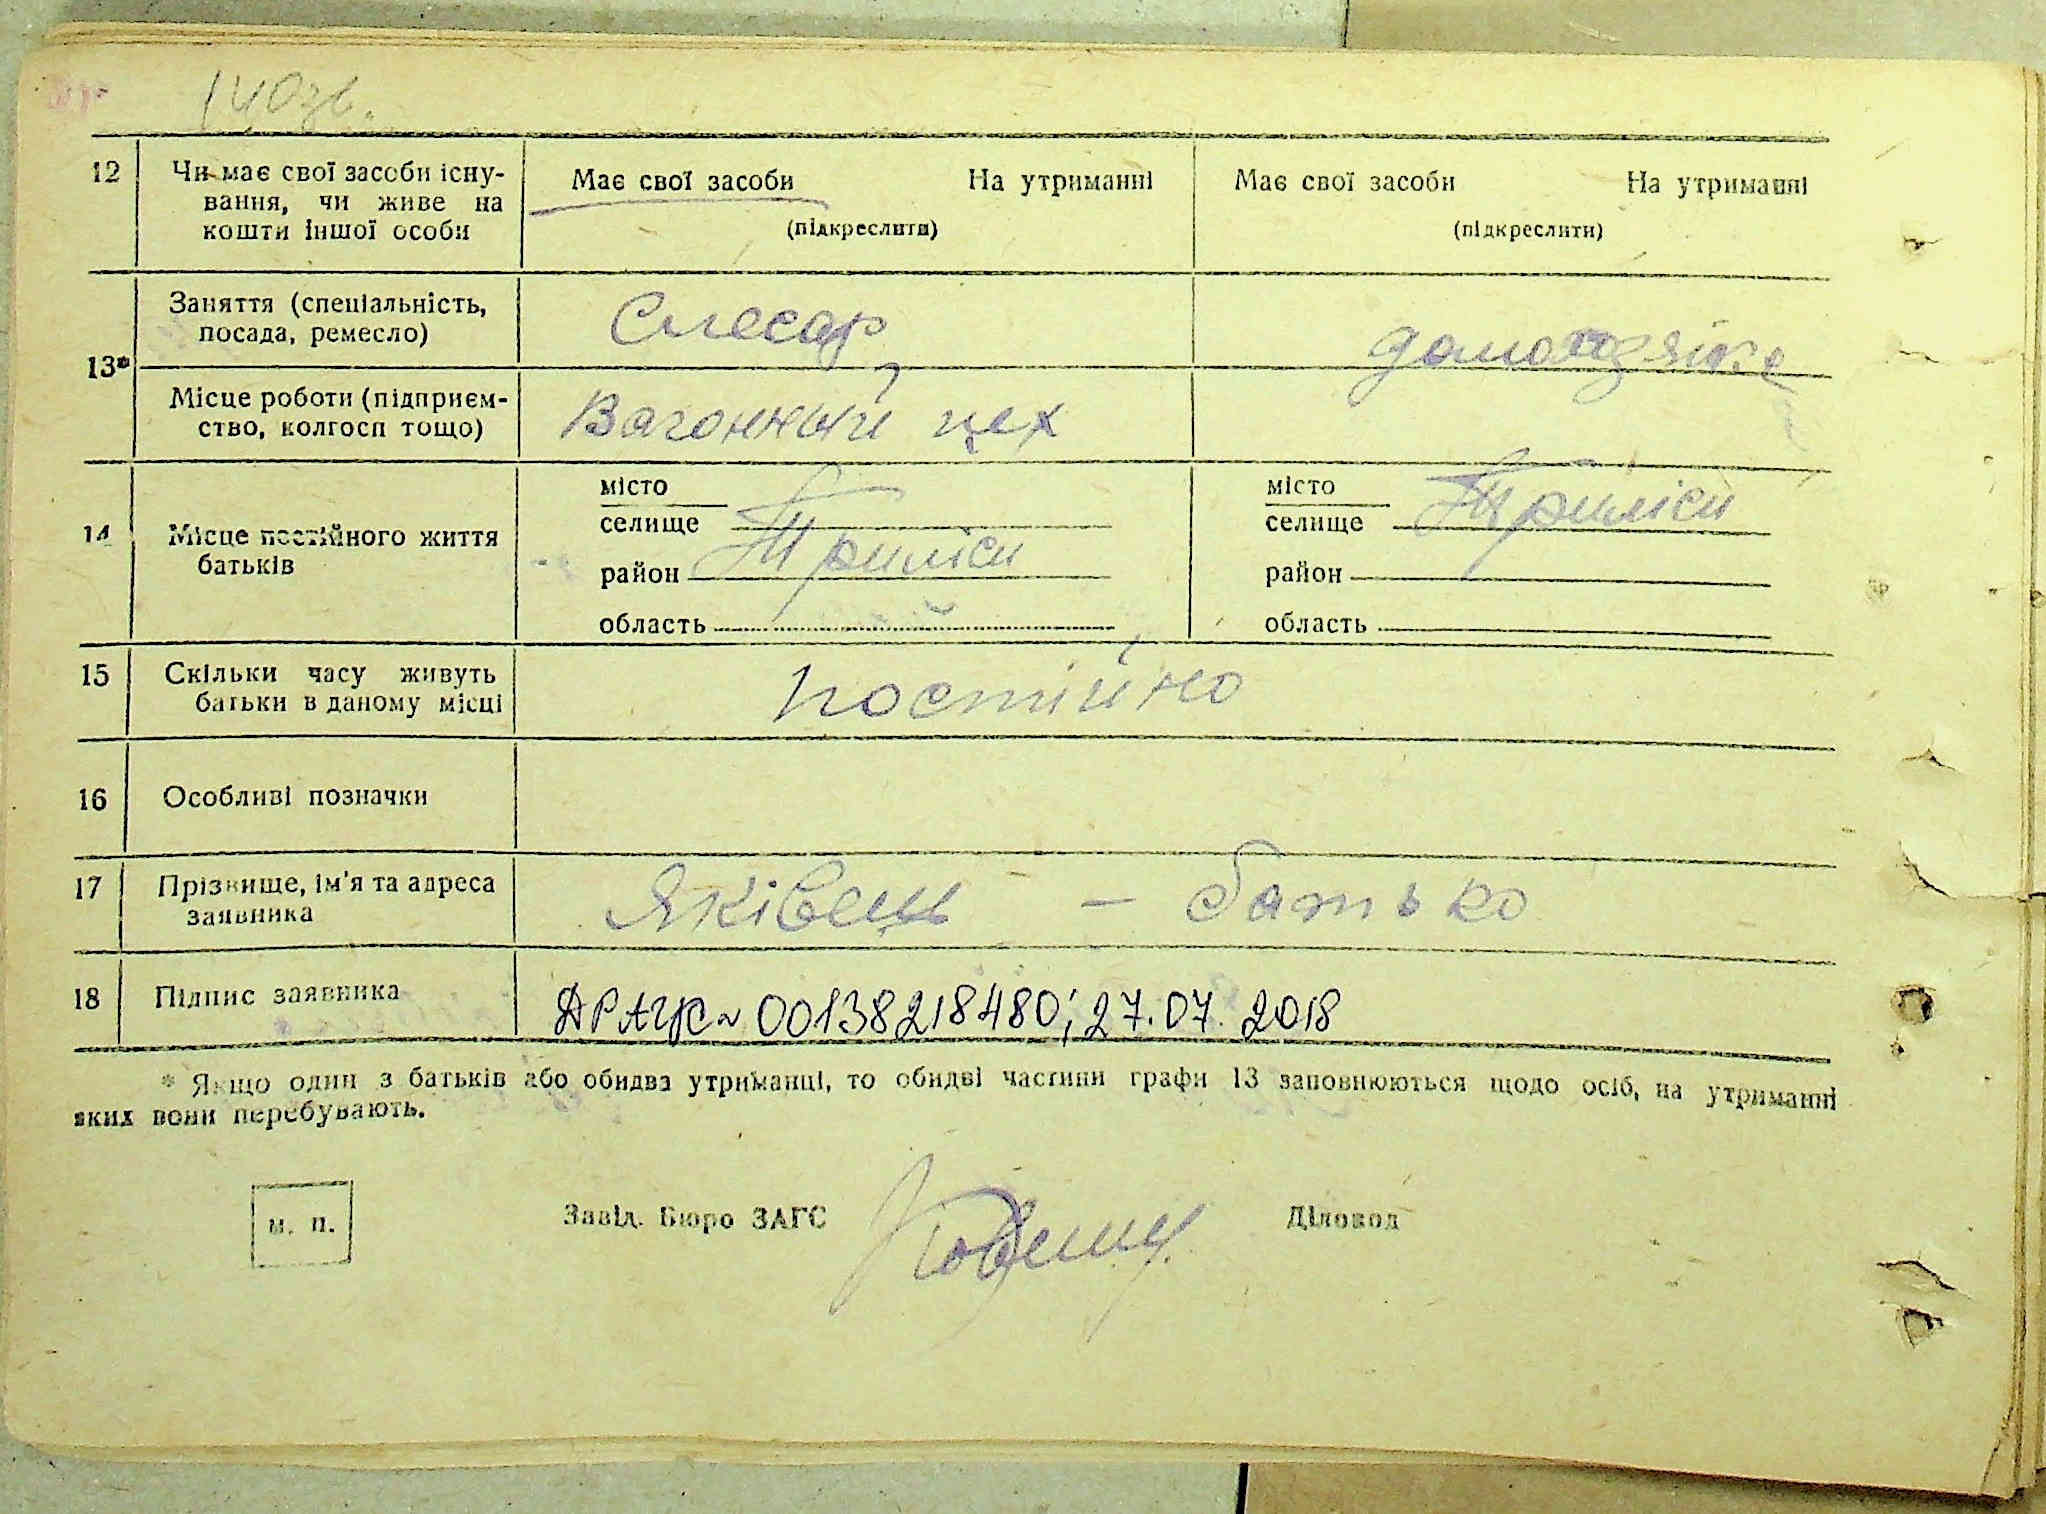 140зв.
12 Чи має свої засоби існу- Має свої засоби На утриманні Має свої засоби На утриманні
вання, чи живе на
кошти іншої особи (підкреслити) (підкреслити)
13* Заняття (спеціальність, Слесар домогозяйка
посада, ремесло)
Місце роботи (підприєм- Вагонный цех
ство, колгосп тощо)
14 Місце постійного життя
батьків
місто
селище Триліси
район
область
місто
селище Триліси
район
область
15 Скільки часу живуть постійно
батьки в даному місці
16 Особливі позначки
17 Прізвище, ім'я та адреса Яківець – батько
заявника
18 Підпис заявника 00138218480; 27.07.2018
* Якщо один з батьків або обидва утриманці, то обидві частини графи 13 заповнюються щодо осіб, на утриманні
яких вони перебувають.
м. п. Завід. Бюро ЗАГС Діловод